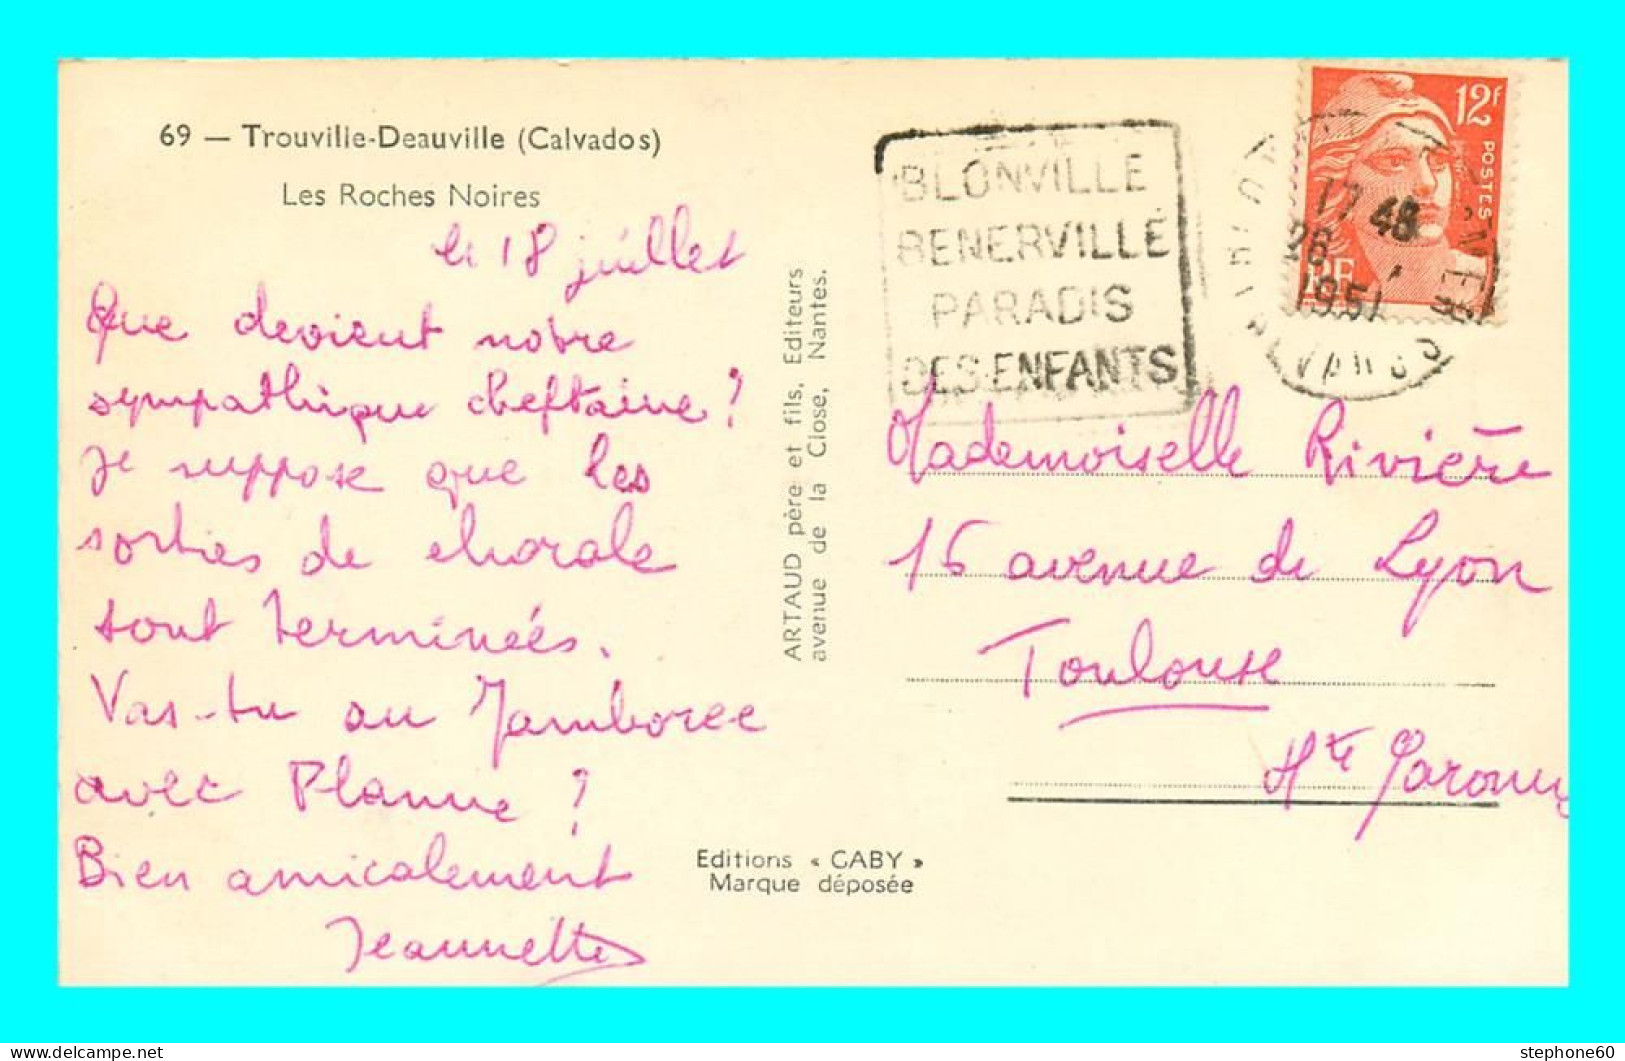 69 — Trouville-Deauville (Calvados)
Les Roches Noires
le 18 juillet
Que devient notre
sympathique cheftaine ?
Je suppose que les
sorties de chorale
sont terminées.
Vas-tu au Jamboree
avec Planne ?
Bien amicalement
Jeannette
ARTAUD père et fils, Editeurs
avenue de la Close, Nantes.
Editions « GABY »
Marque déposée
BLONVILLE
BENERVILLE
PARADIS
DES ENFANTS
12F
POSTES
RF
17 48
1951
Mademoiselle Rivière
15 avenue de Lyon
Toulouse
Hte Garonne
stephone60